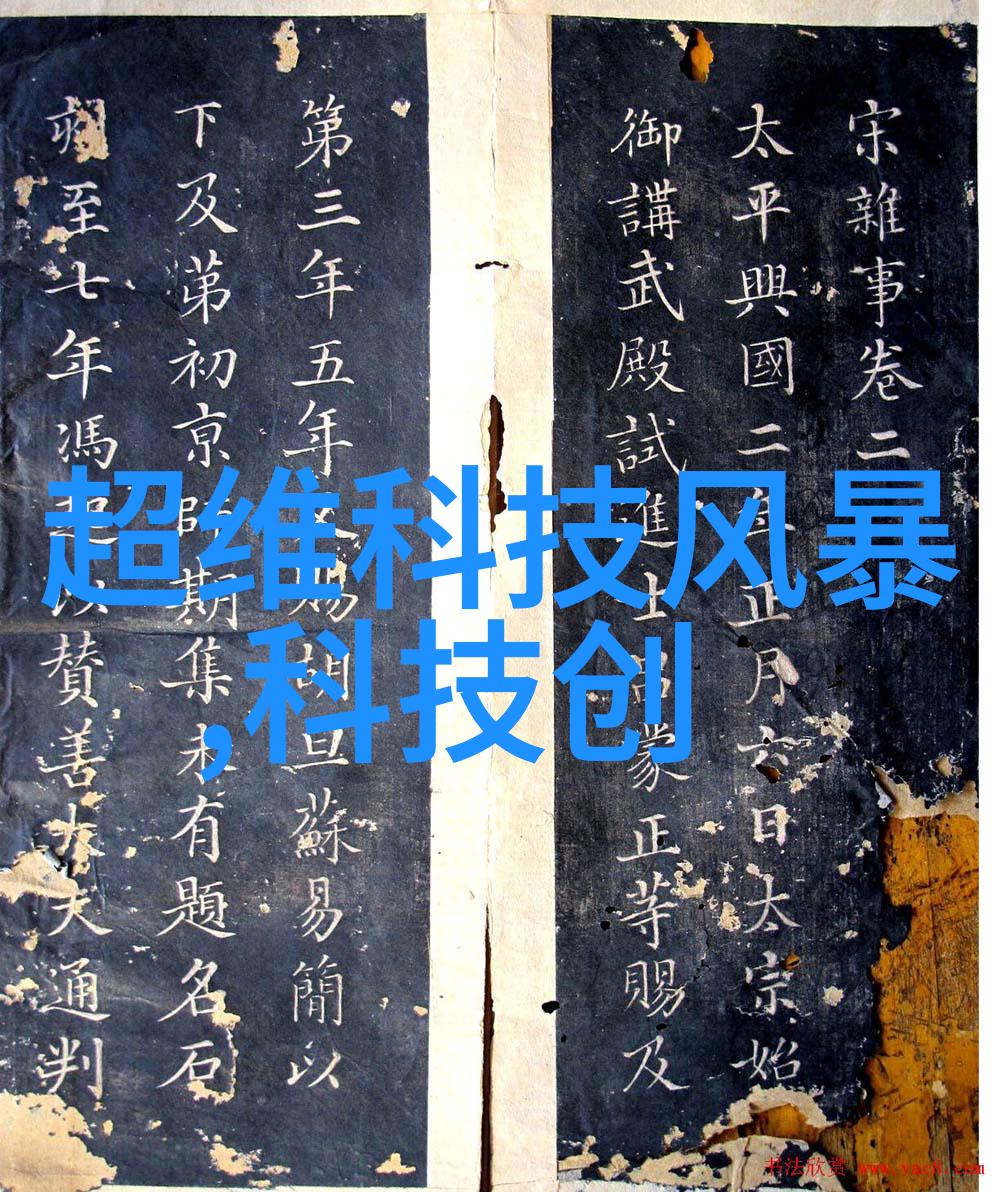 宋雜事卷二
太平興國二年正月六日太宗始
御講武殿試進士吕蒙正等賜及
第三年五年賜胡旦蘇易簡以
下及苐初京師期集未有題名石
至七年馮起以贊善大夫通判
超维科技风暴
,科技创
书法欣赏 www.yac8.com